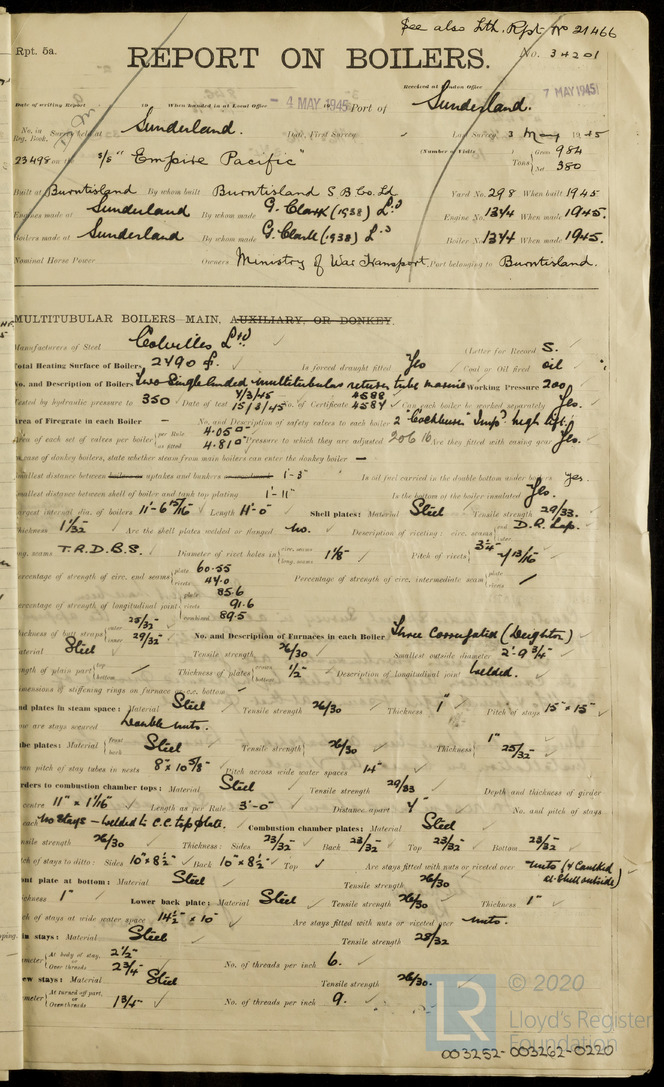 See also Lth. Rpt. No 21466
Rpt. 5a.
REPORT ON BOILERS.
No. 34201
Received at London Office 7 MAY 1945
Date of writing Report 19 When handed in at Local Office - 4 MAY 1945 Port of Sunderland.
No. in Reg. Book. Survey held at Sunderland. Date, First Survey Last Survey 3 May 1945
23498 on the S/S "Empire Pacific" (Number of Visits ) Tons Gross 984 Net 380
Built at Burntisland By whom built Burntisland S B Co. Ld Yard No. 298 When built 1945
Engines made at Sunderland By whom made G. Clark (1938) Ld Engine No. 1344 When made 1945.
Boilers made at Sunderland By whom made G. Clark (1938) Ld Boiler No. 1344 When made 1945.
Nominal Horse Power Owners Ministry of War Transport. Port belonging to Burntisland.
MULTITUBULAR BOILERS MAIN, AUXILIARY, OR DONKEY.
Manufacturers of Steel Colvilles Ltd (Letter for Record S.
Total Heating Surface of Boilers 2490 Is forced draught fitted Yes Coal or Oil fired oil
No. and Description of Boilers Two Single Ended multitubular return tube marine Working Pressure 200
Tested by hydraulic pressure to 350 Date of test 7/3/45 15/3/45 No. of Certificate 4588 4587 Can each boiler be worked separately Yes.
Area of Firegrate in each Boiler - No. and Description of safety valves to each boiler 2 "Cockburns" Imp. high lift.
Area of each set of valves per boiler per Rule 4.05 as fitted 4.81 Pressure to which they are adjusted 206 lb Are they fitted with easing gear Yes.
In case of donkey boilers, state whether steam from main boilers can enter the donkey boiler -
Smallest distance between boilers or uptakes and bunkers 1'-3" Is oil fuel carried in the double bottom under boilers Yes.
Smallest distance between shell of boiler and tank top plating 1'-11" Is the bottom of the boiler insulated Yes.
Largest internal dia. of boilers 11'-6 15/16" Length 11'-0" Shell plates: Material Steel Tensile strength 29/33.
Thickness 1 1/32" Are the shell plates welded or flanged No. Description of riveting: circ. seams end D.R. Lap. inter.
long. seams T.R.D.B.S. Diameter of rivet holes in circ. seams long. seams 1 1/8" Pitch of rivets 3 1/4" 7 13/16"
Percentage of strength of circ. end seams plate 60.55 rivets 44.0 Percentage of strength of circ. intermediate seam plate rivets
Percentage of strength of longitudinal joint plate 85.6 rivets 91.6 combined 89.5
Thickness of butt straps outer 25/32" inner 29/32" No. and Description of Furnaces in each Boiler Three Corrugated (Deighton)
Material Steel Tensile strength 26/30 Smallest outside diameter 2'-9 3/4"
Length of plain part top bottom Thickness of plates crown bottom 1/2" Description of longitudinal joint Welded.
Dimensions of stiffening rings on furnace or c.c. bottom
End plates in steam space: Material Steel Tensile strength 26/30 Thickness 1" Pitch of stays 15" x 15"
How are stays secured Double nuts.
Tube plates: Material front back Steel Tensile strength 26/30 Thickness 1" 25/32"
Mean pitch of stay tubes in nests 8" x 10 5/8" Pitch across wide water spaces 14"
Girders to combustion chamber tops: Material Steel Tensile strength 29/33 Depth and thickness of girder
at centre 11" x 1 1/16" Length as per Rule 3'-0" Distance apart No. and pitch of stays
in each No Stays - Welded to C.C. top plate. Combustion chamber plates: Material Steel
Tensile strength 26/30 Thickness: Sides 23/32" Back 23/32" Top 23/32" Bottom 23/32"
Pitch of stays to ditto: Sides 10" x 8 1/2" Back 10" x 8 1/2" Top Are stays fitted with nuts or riveted over Nuts (& Caulked at Shell outside)
Front plate at bottom: Material Steel Tensile strength 26/30
Thickness 1" Lower back plate: Material Steel Tensile strength 26/30 Thickness 1"
Pitch of stays at wide water space 14 1/2" x 10" Are stays fitted with nuts or riveted over Nuts.
Main stays: Material Steel Tensile strength 28/32
Diameter At body of stay, 2 1/2" or Over threads 2 3/4" No. of threads per inch 6.
Screw stays: Material Steel Tensile strength 26/30.
Diameter At turned off part, or Over threads 1 3/4" No. of threads per inch 9.
© 2020
Lloyd's Register
Foundation
003252-003262-0220